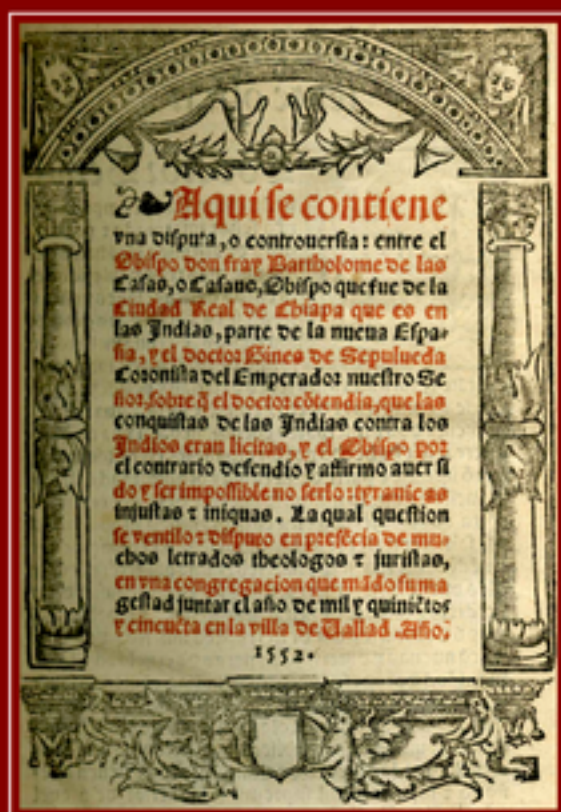 Aqui se contiene
vna disputa, o controuersia: entre el
Obispo don fray Bartholome de las
Casas, o Casaus, Obispo que fue de la
Ciudad Real de Chiapa que es en
las Indias, parte de la nueua Espa-
ña, y el doctor Gines de Sepulueda
Coronista del Emperador nuestro Se
ñor, sobre q̃ el doctor cõtendia, que las
conquistas de las Indias contra los
Indios eran licitas, y el Obispo por
el contrario defendio y affirmo auer si
do y ser impossible no serlo: tyranicas
injustas ⁊ iniquas. La qual question
se ventilo ⁊ disputo en presẽcia de mu
chos letrados theologos ⁊ juristas,
en vna congregacion que mãdo su ma
gestad juntar el año de mil y quiniẽtos
y cincuẽta en la villa de Vallad. Año,
1552.